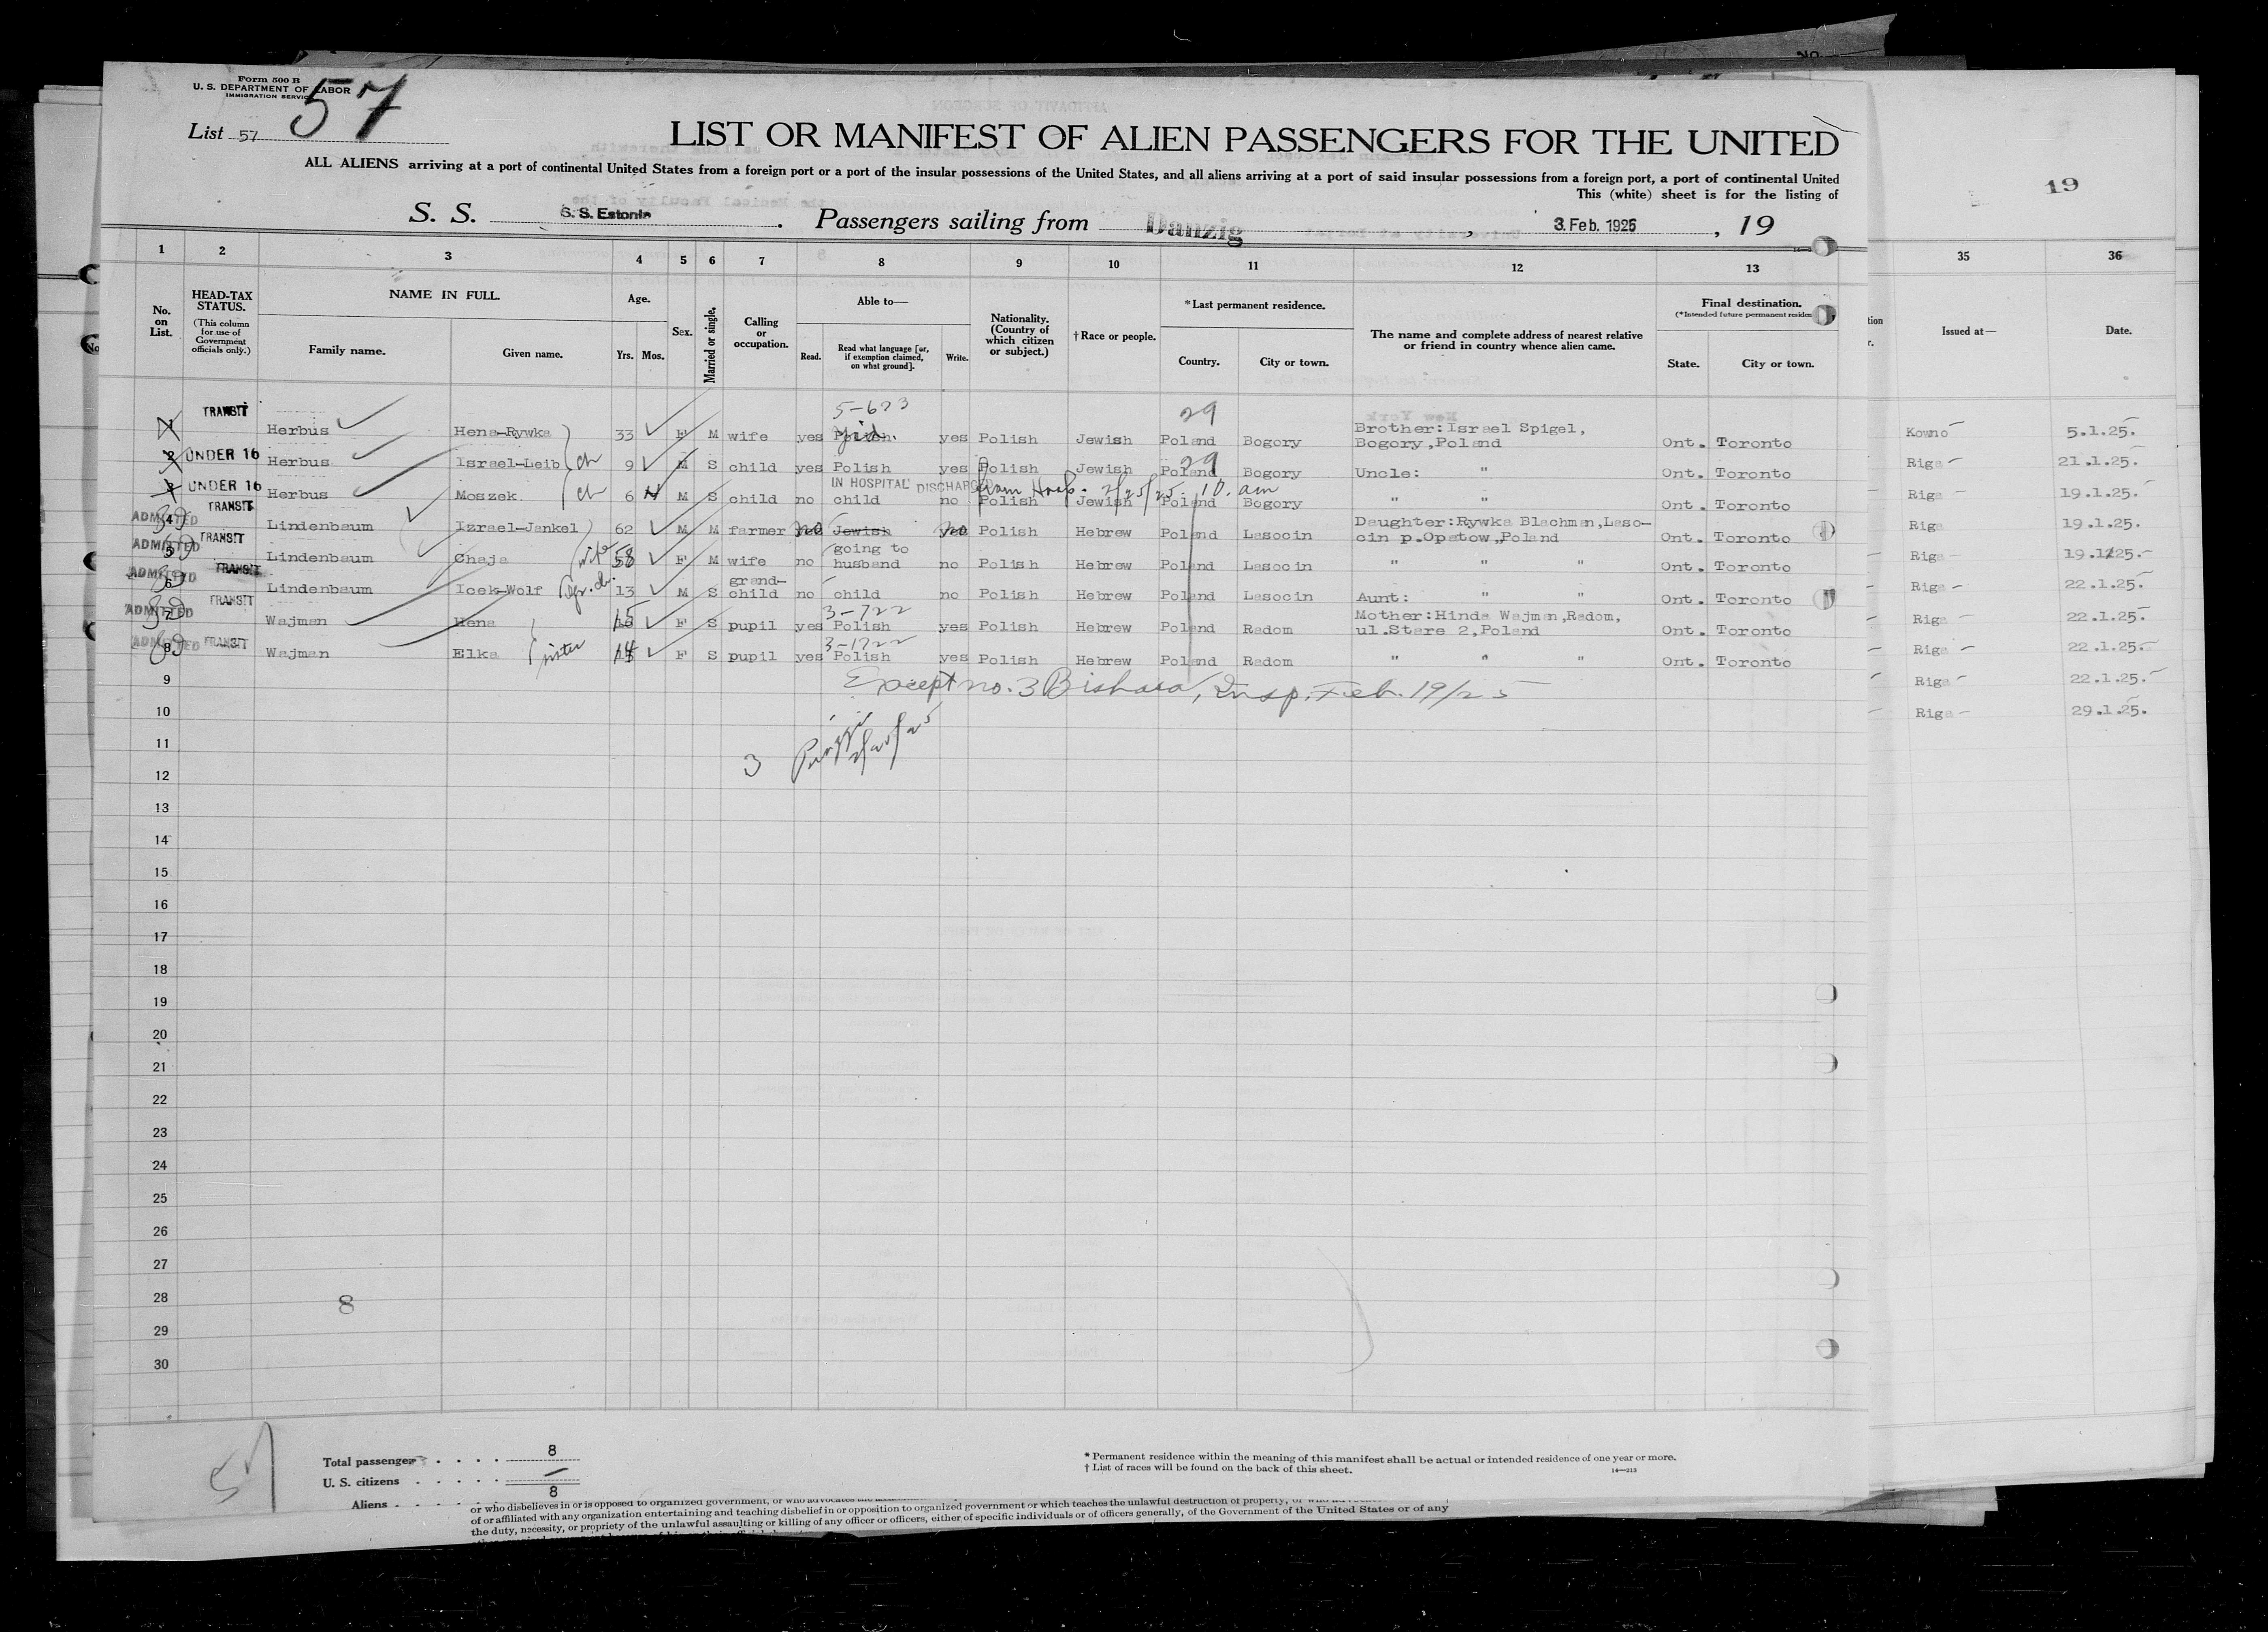 Form 500 B
U. S. DEPARTMENT OF LABOR
IMMIGRATION SERVICE
57
List 57
LIST OR MANIFEST OF ALIEN PASSENGERS FOR THE UNITED
ALL ALIENS arriving at a port of continental United States from a foreign port or a port of the insular possessions of the United States, and all aliens arriving at a port of said insular possessions from a foreign port, a port of continental United
This (white) sheet is for the listing of
19
S. S. S. S. Estonia. Passengers sailing from Danzig, 3. Feb. 1925, 19
1 2 3 4 5 6 7 8 9 10 11 12 13 35 36
No. on List.
HEAD-TAX STATUS.
(This column for use of Government officials only.)
NAME IN FULL.
Family name.
Given name.
Age.
Yrs. Mos.
Sex.
Married or single.
Calling or occupation.
Able to—
Read.
Read what language [or, if exemption claimed, on what ground].
Write.
Nationality. (Country of which citizen or subject.)
† Race or people.
*Last permanent residence.
Country.
City or town.
The name and complete address of nearest relative or friend in country whence alien came.
Final destination.
(*Intended future permanent residen
State.
City or town.
Issued at—
Date.
TRANSIT 5-623 29 Brother: Israel Spigel,
1 Herbus Hena-Rywka 33 F M wife yes Polish Yid. yes Polish Jewish Poland Bogory Bogory, Poland Ont. Toronto
2 UNDER 16 Herbus Israel-Leib ch 9 M S child yes Polish yes Polish Jewish Poland 29 Bogory Uncle: " Ont. Toronto
IN HOSPITAL DISCHARGED from Hosp. 2/25/25. 10. am
3 UNDER 16 Herbus Moszek ch 6 M S child no child no Polish Jewish Poland Bogory " " Ont. Toronto
ADMITTED TRANSIT Daughter: Rywka Blachman, Laso-
4 Lindenbaum Izrael-Jankel 62 M M farmer no Jewish no Polish Hebrew Poland Lasocin cin p. Opatow, Poland Ont. Toronto
ADMITTED TRANSIT going to
5 Lindenbaum Chaja wife 58 F M wife no husband no Polish Hebrew Poland Lasocin " " " Ont. Toronto
ADMITTED TRANSIT grand-
6 Lindenbaum Icek-Wolf gr. ch. 13 M S child no child no Polish Hebrew Poland Lasocin Aunt: " " Ont. Toronto
ADMITTED TRANSIT 3-722 Mother: Hinda Wajman, Radom,
7 Wajman Hena 15 F S pupil yes Polish yes Polish Hebrew Poland Radom ul. Stare 2, Poland Ont. Toronto
ADMITTED TRANSIT 3-1722
8 Wajman Elka sister 14 F S pupil yes Polish yes Polish Hebrew Poland Radom " " " Ont. Toronto
Kowno 5.1.25.
Riga 21.1.25.
Riga 19.1.25.
Riga 19.1.25.
Riga 19.1.25.
Riga 22.1.25.
Riga 22.1.25.
Riga 22.1.25.
Riga 22.1.25.
Riga 29.1.25.
9 Except no. 3 Insp. Feb. 19/25
10
11
3
12
13
14
15
16
17
18
19
20
21
22
23
24
25
26
27
28
8
29
30
Total passengers . . . . . 8
U. S. citizens . . . . . —
Aliens . . . . . 8
* Permanent residence within the meaning of this manifest shall be actual or intended residence of one year or more.
† List of races will be found on the back of this sheet.
14—213
or who disbelieves in or is opposed to organized government, or who advocates
of or affiliated with any organization entertaining and teaching disbelief in or opposition to organized government or which teaches the unlawful destruction of property,
the duty, necessity, or propriety of the unlawful assaulting or killing of any officer or officers, either of specific individuals or of officers generally, of the Government of the United States or of any